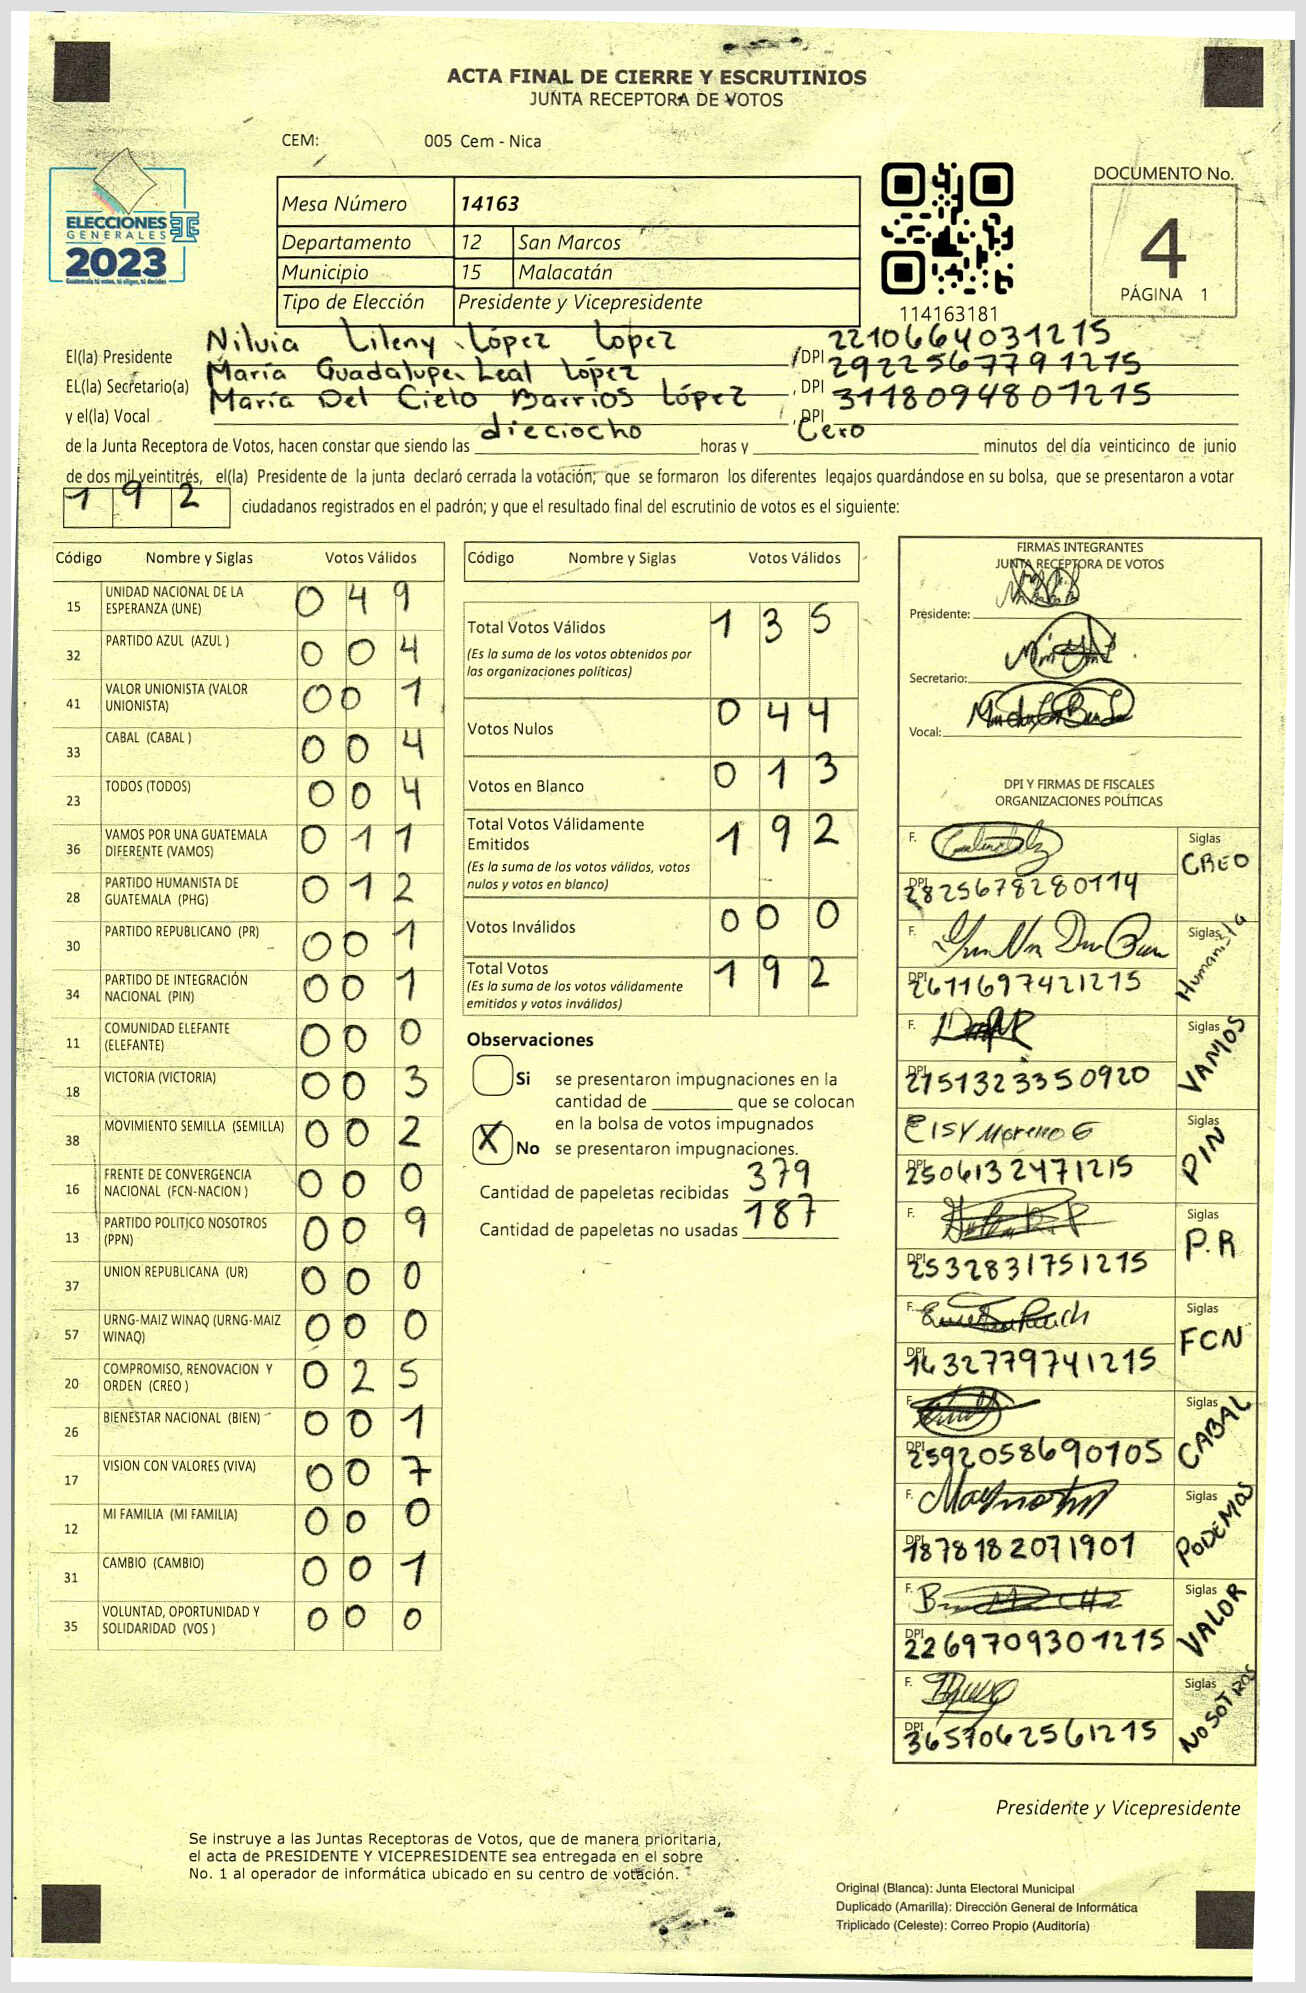 ACTA FINAL DE CIERRE Y ESCRUTINIOS
JUNTA RECEPTORA DE VOTOS
CEM: 005 Cem - Nica
ELECCIONES
GENERALES
2023
Guatemala tú votas, tú eliges, tú decides
Mesa Número 14163
Departamento 12 San Marcos
Municipio 15 Malacatán
Tipo de Elección Presidente y Vicepresidente
114163181
DOCUMENTO No.
4
PÁGINA 1
El(la) Presidente Nilvia Lileny López Lopez /DPI 2210664031215
EL(la) Secretario(a) María Guadalupe Leal López , DPI 2922567791215
y el(la) Vocal María Del Cielo Barrios López , DPI 3118094801215
de la Junta Receptora de Votos, hacen constar que siendo las dieciocho horas y Cero minutos del día veinticinco de junio
de dos mil veintitrés, el(la) Presidente de la junta declaró cerrada la votación; que se formaron los diferentes legajos guardándose en su bolsa, que se presentaron a votar
192 ciudadanos registrados en el padrón; y que el resultado final del escrutinio de votos es el siguiente:
Código Nombre y Siglas Votos Válidos
15 UNIDAD NACIONAL DE LA ESPERANZA (UNE) 049
32 PARTIDO AZUL (AZUL ) 004
41 VALOR UNIONISTA (VALOR UNIONISTA) 001
33 CABAL (CABAL ) 004
23 TODOS (TODOS) 004
36 VAMOS POR UNA GUATEMALA DIFERENTE (VAMOS) 011
28 PARTIDO HUMANISTA DE GUATEMALA (PHG) 012
30 PARTIDO REPUBLICANO (PR) 001
34 PARTIDO DE INTEGRACIÓN NACIONAL (PIN) 001
11 COMUNIDAD ELEFANTE (ELEFANTE) 000
18 VICTORIA (VICTORIA) 003
38 MOVIMIENTO SEMILLA (SEMILLA) 002
16 FRENTE DE CONVERGENCIA NACIONAL (FCN-NACION ) 000
13 PARTIDO POLITICO NOSOTROS (PPN) 009
37 UNION REPUBLICANA (UR) 000
57 URNG-MAIZ WINAQ (URNG-MAIZ WINAQ) 000
20 COMPROMISO, RENOVACION Y ORDEN (CREO ) 025
26 BIENESTAR NACIONAL (BIEN) 001
17 VISION CON VALORES (VIVA) 007
12 MI FAMILIA (MI FAMILIA) 000
31 CAMBIO (CAMBIO) 001
35 VOLUNTAD, OPORTUNIDAD Y SOLIDARIDAD (VOS ) 000
Código Nombre y Siglas Votos Válidos
Total Votos Válidos 135
(Es la suma de los votos obtenidos por
las organizaciones políticas)
Votos Nulos 044
Votos en Blanco 013
Total Votos Válidamente
Emitidos 192
(Es la suma de los votos válidos, votos
nulos y votos en blanco)
Votos Inválidos 000
Total Votos 192
(Es la suma de los votos válidamente
emitidos y votos inválidos)
Observaciones
Si se presentaron impugnaciones en la
cantidad de ________ que se colocan
en la bolsa de votos impugnados
X No se presentaron impugnaciones.
Cantidad de papeletas recibidas 379
Cantidad de papeletas no usadas 187
FIRMAS INTEGRANTES
JUNTA RECEPTORA DE VOTOS
Presidente:
Secretario:
Vocal:
DPI Y FIRMAS DE FISCALES
ORGANIZACIONES POLÍTICAS
F. Siglas CREO
DPI 2825678280114
F. Siglas Humanista
DPI 2671697421215
F. Siglas VAMOS
DPI 2151323350920
F. Eisy Moreno G Siglas PIN
DPI 2506132471215
F. Siglas P.R
DPI 2532831751215
F. Siglas FCN
DPI 1632779741215
F. Siglas CABAL
DPI 2592058690105
F. Siglas PODEMOS
DPI 1878182071901
F. Siglas VALOR
DPI 2269709301215
F. Siglas NOSOTROS
DPI 3657062561215
Presidente y Vicepresidente
Se instruye a las Juntas Receptoras de Votos, que de manera prioritaria,
el acta de PRESIDENTE Y VICEPRESIDENTE sea entregada en el sobre
No. 1 al operador de informática ubicado en su centro de votación.
Original (Blanca): Junta Electoral Municipal
Duplicado (Amarilla): Dirección General de Informática
Triplicado (Celeste): Correo Propio (Auditoría)